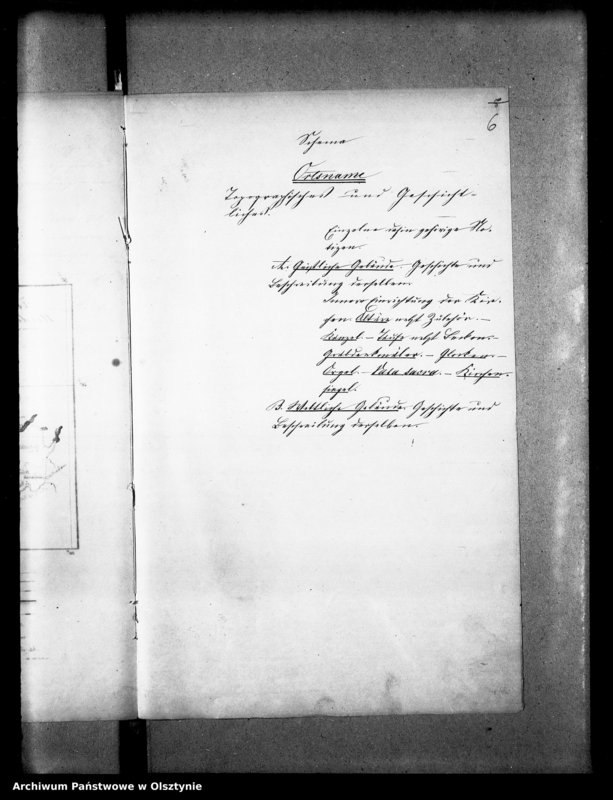 6
Schema
Ortsname
Topographisches und Geschicht-
liches.
Einzelne dahin gehörige No-
tizen.
A. Geistliche Gebäude. Geschichte und
Beschreibung derselben.
Innere Einrichtung der Kir-
chen. Altäre nebst Zubehör. —
Kanzel. — Taufe nebst Becken. —
Grabdenkmäler. — Glocken. —
Orgel. — Vasa sacra. — Kirchen-
siegel.
B. Weltliche Gebäude. Geschichte und
Beschreibung derselben.
Archiwum Państwowe w Olsztynie